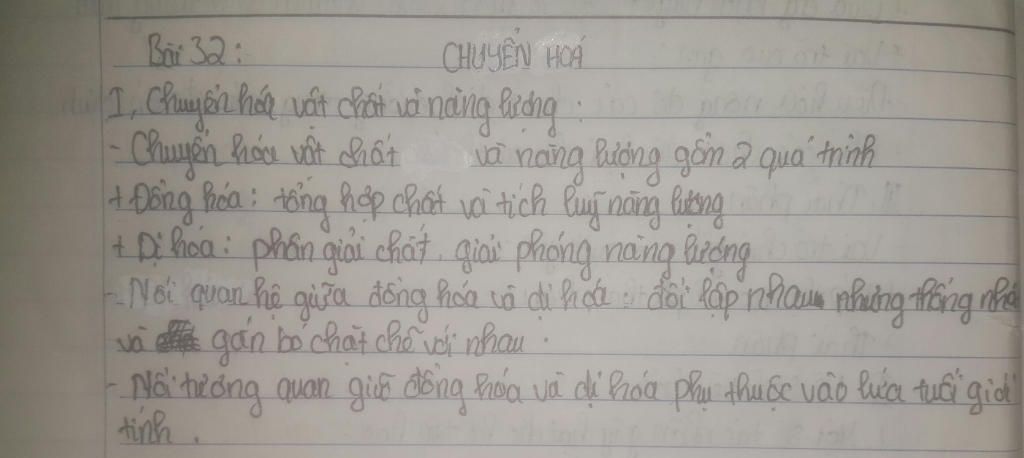 Bài 32: CHUYỂN HOÁ
I, Chuyển hóa vật chất và năng lượng:
- Chuyển hóa vật chất và năng lượng gồm 2 quá trình
+ Đồng hóa: tổng hợp chất và tích luỹ năng lượng
+ Dị hóa: phân giải chất, giải phóng năng lượng
- Nối quan hệ giữa đồng hóa và dị hóa: đối lập nhau nhưng thống nhấ
và gắn bó chặt chẽ với nhau.
- Nối tương quan giữ đồng hóa và dị hóa phụ thuộc vào lứa tuổi giới
tính.